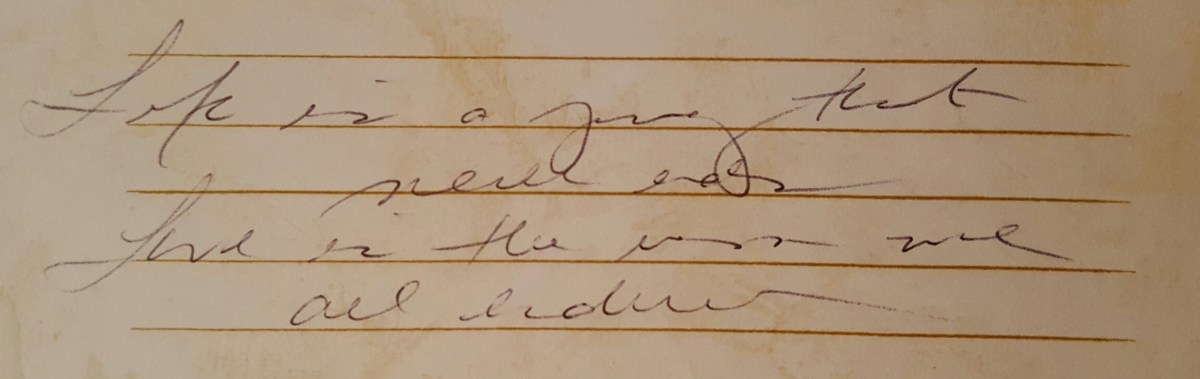 Life is a journey that
never ends
Love is the we
all endure